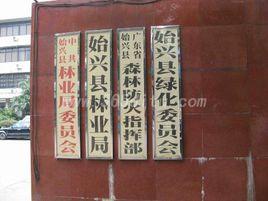 中共
始兴县
林业局委员会
始兴县林业局
广东省
始兴县
森林防火指挥部
始兴县绿化委员会